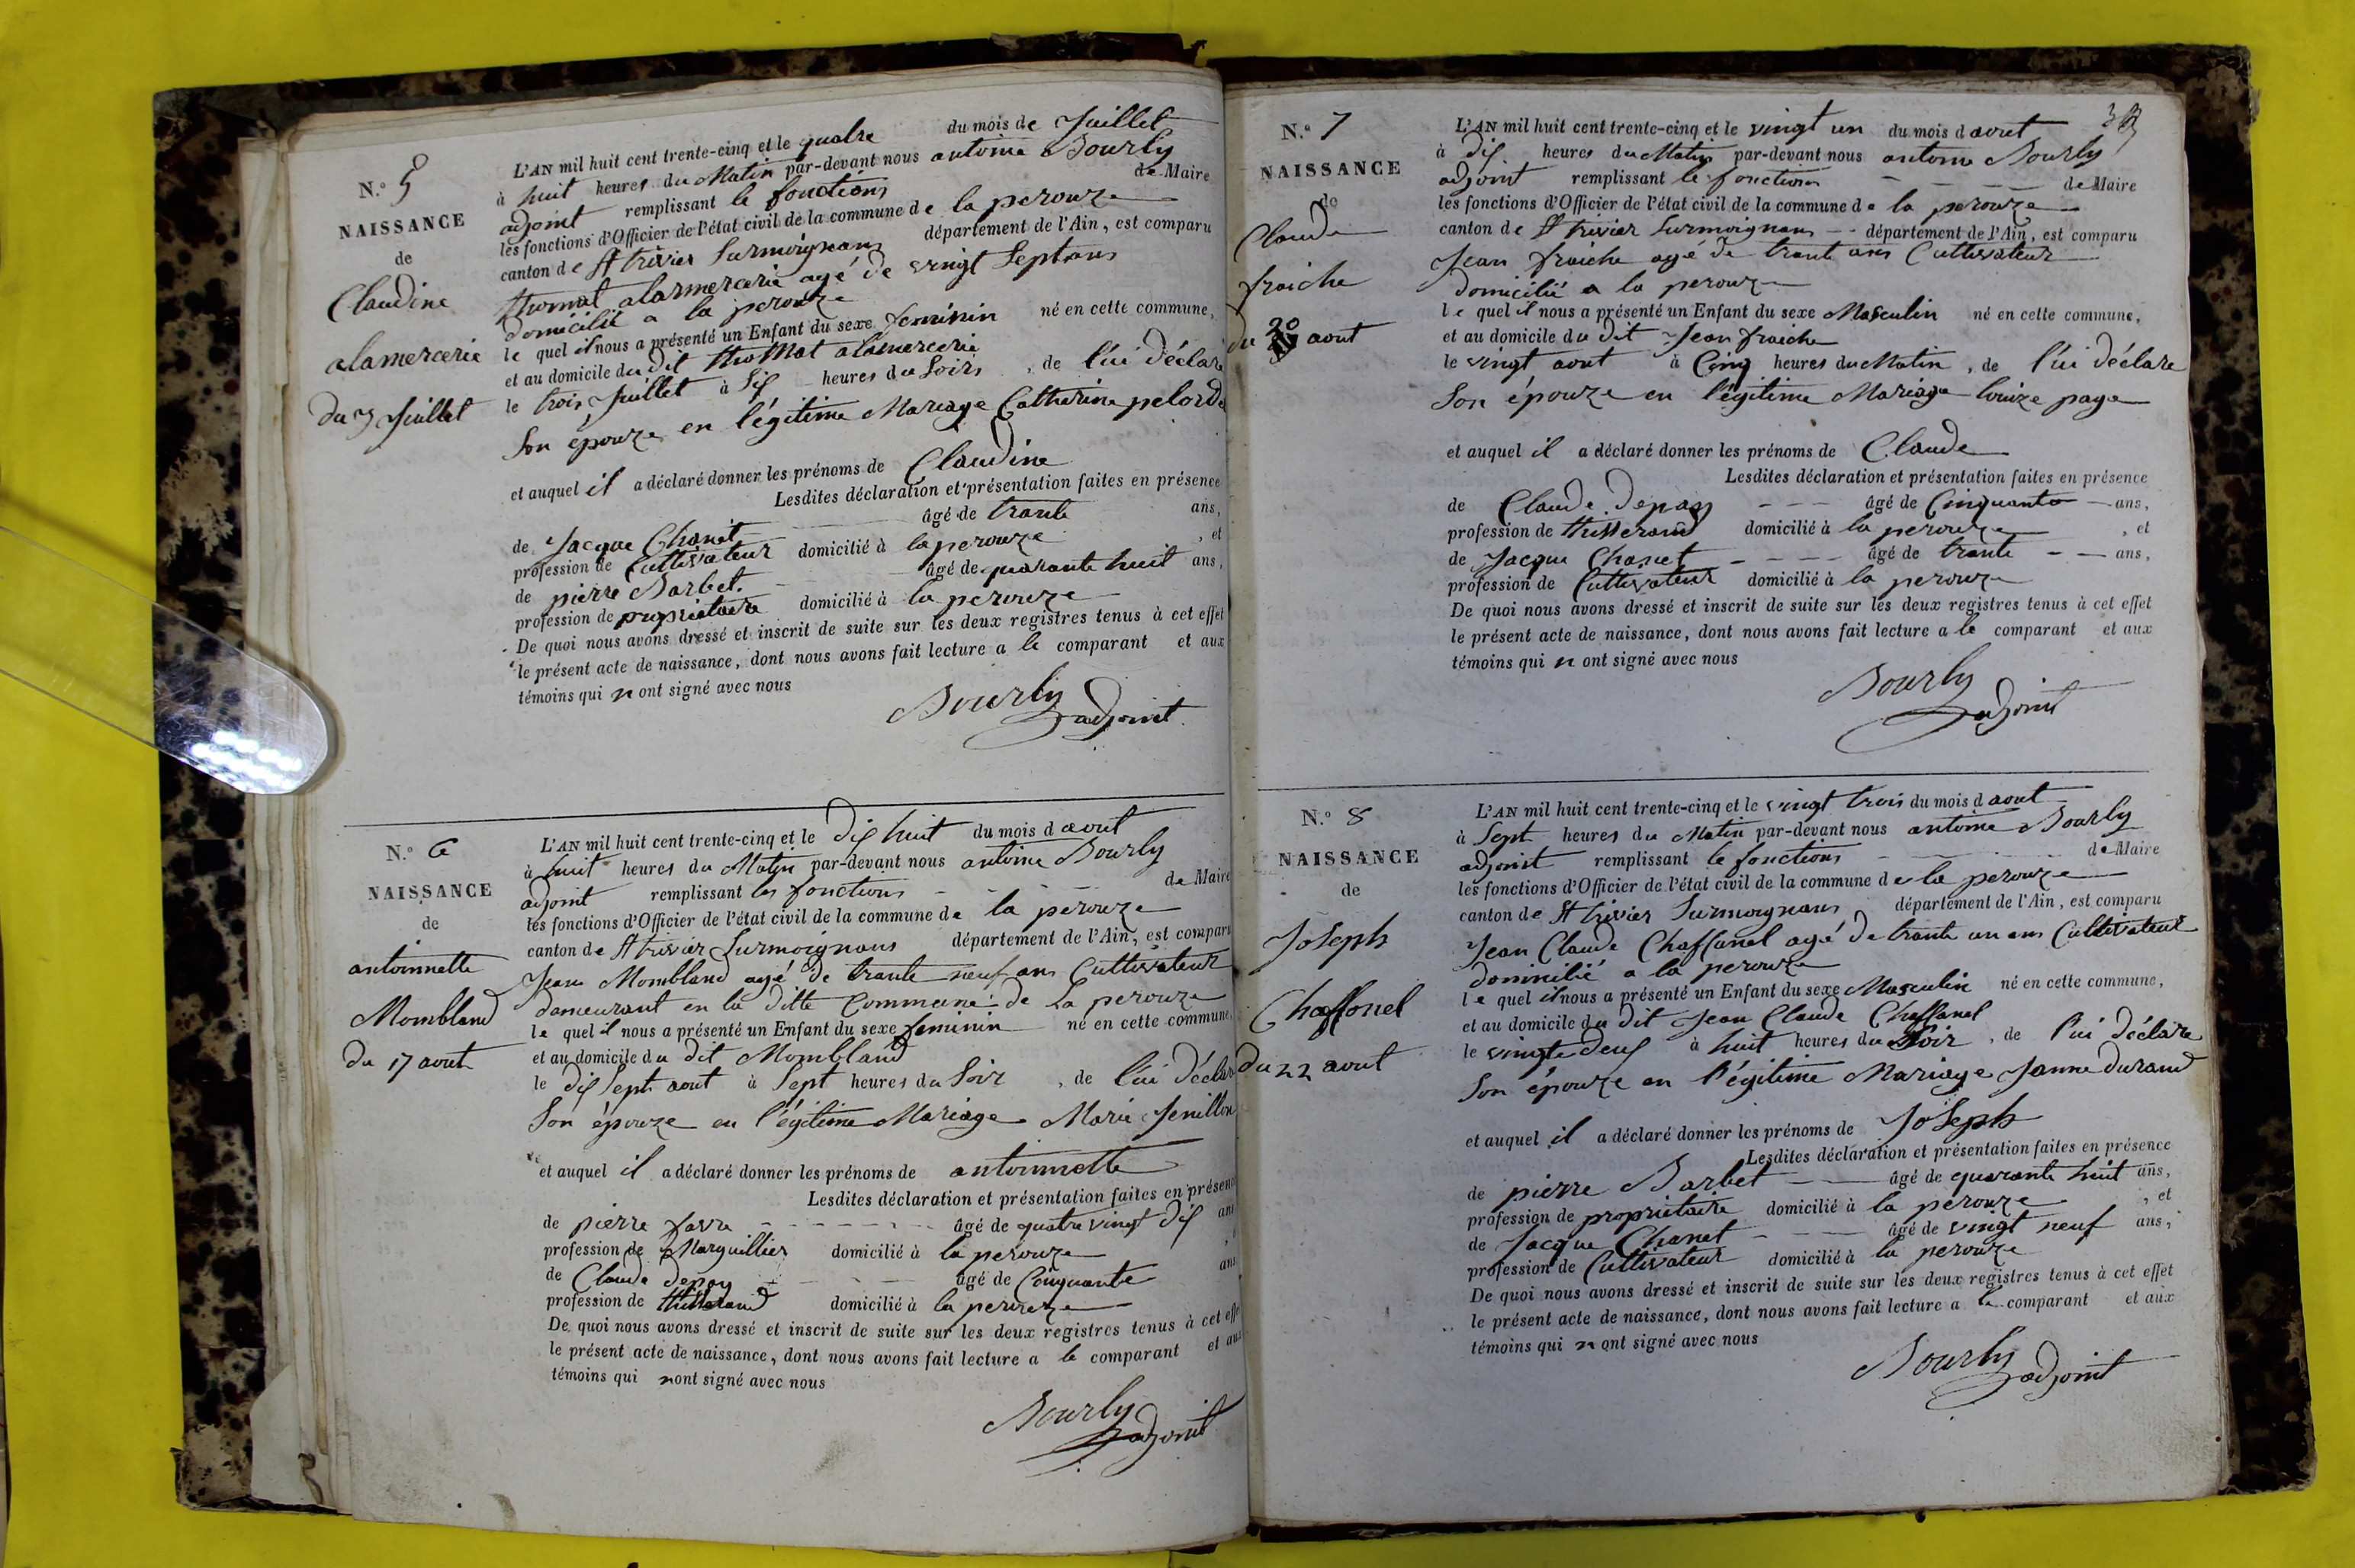 N.° 5
NAISSANCE
de
Claudine
alamercerie
du 3 Juillet
L'AN mil huit cent trente-cinq et le quatre du mois de Juillet
à huit heures du Matin par-devant nous antoine Bourly
adjoint remplissant le fonctions de Maire
les fonctions d'Officier de l'état civil de la commune de la perouze
canton de St trivier Surmoignans département de l'Ain, est comparu
thomat alarmercerie agé de vingt Sept ans
domicilié a la perouze
le quel il nous a présenté un Enfant du sexe feminin né en cette commune,
et au domicile du dit thoMat alamercerie
le trois Juillet à Six heures du Soirs, de lui déclare
Son épouze en légitime Mariage Catherine
et auquel il a déclaré donner les prénoms de Claudine
Lesdites déclaration et présentation faites en présence
de Jacque Chanet âgé de trante ans,
profession de Cultivateur domicilié à la perouze, et
de pierre Barbet. âgé de quarante huit ans,
profession de propriétaire domicilié à la perouze
De quoi nous avons dressé et inscrit de suite sur les deux registres tenus à cet effet
le présent acte de naissance, dont nous avons fait lecture a le comparant et aux
témoins qui n ont signé avec nous
Bourly
adjoint
N.° 6
NAISSANCE
de
antoinnette
Mombland
du 17 aout
L'AN mil huit cent trente-cinq et le dix huit du mois d aout
à huit heures du Matin par-devant nous antoine Bourly
adjoint remplissant les fonctions de Maire
les fonctions d'Officier de l'état civil de la commune de la perouze
canton de St trivier Surmoignans département de l'Ain, est comparu
Jean Mombland agé de trante neuf ans Cultivateur
demeurant en la ditte Commune de La perouze
le quel il nous a présenté un Enfant du sexe feminin né en cette commune,
et au domicile du dit Mombland
le dix Sept aout à Sept heures du Soir, de lui déclare
Son épouze en l'égitime Mariage Marie Jenillon
et auquel il a déclaré donner les prénoms de antoinnette
Lesdites déclaration et présentation faites en présence
de pierre favre âgé de quatre vingt dix ans
profession de Marguillier domicilié à la perouze,
de Claude depay âgé de Cinquante ans
profession de thisserand domicilié à la perouze
De quoi nous avons dressé et inscrit de suite sur les deux registres tenus à cet effet
le présent acte de naissance, dont nous avons fait lecture a le comparant et aux
témoins qui n ont signé avec nous
Bourly
adjoint
N.° 7
NAISSANCE
de
Claude
fraiche
du 20 aout
L'AN mil huit cent trente-cinq et le vingt un du mois d aout
à dix heures du Matin par-devant nous antoine Bourly
adjoint remplissant le fonctions de Maire
les fonctions d'Officier de l'état civil de la commune de la perouze
canton de St trivier Surmoignans département de l'Ain, est comparu
Jean fraiche agé de trante ans Cultivateur
domicilié a la perouze
le quel il nous a présenté un Enfant du sexe Masculin né en cette commune,
et au domicile du dit Jean fraiche
le vingt aout à Cinq heures du Matin, de lui déclare
Son épouze en légitime Mariage louize page
et auquel il a déclaré donner les prénoms de Claude
Lesdites déclaration et présentation faites en présence
de Claude depay âgé de Cinquante ans,
profession de thisserand domicilié à la perouze, et
de Jacque Chanet âgé de trante ans,
profession de Cultivateur domicilié à la perouze
De quoi nous avons dressé et inscrit de suite sur les deux registres tenus à cet effet
le présent acte de naissance, dont nous avons fait lecture a le comparant et aux
témoins qui n ont signé avec nous
Bourly
adjoint
N.° 8
NAISSANCE
de
JoSeph
Chaffonel
du 22 aout
L'AN mil huit cent trente-cinq et le vingt trois du mois d aout
à Sept heures du Matin par-devant nous antoine Bourly
adjoint remplissant le fonctions de Maire
les fonctions d'Officier de l'état civil de la commune de la perouze
canton de St trivier Surmoignans département de l'Ain, est comparu
Jean Claude Chaffanel agé de trante un ans Cultivateur
dominilié a la perouze
le quel il nous a présenté un Enfant du sexe Masculin né en cette commune,
et au domicile du dit Jean Claude Chaffanel
le vingte deux à huit heures du Soir, de lui déclare
Son épouze en l'égitime Mariage Janne durand
et auquel il a déclaré donner les prénoms de JoSeph
Lesdites déclaration et présentation faites en présence
de pierre Barbet âgé de quarante huit ans,
profession de propriétaire domicilié à la perouze, et
de Jacque Chanet âgé de vingt neuf ans,
profession de Cultivateur domicilié à la perouze
De quoi nous avons dressé et inscrit de suite sur les deux registres tenus à cet effet
le présent acte de naissance, dont nous avons fait lecture a le comparant et aux
témoins qui n ont signé avec nous
Bourly
adjoint